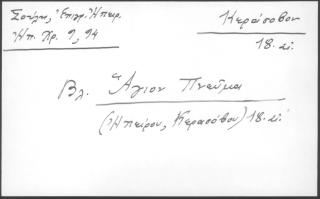 Σούλης, Ἐπιγρ. Ἠπειρ.
Ἠπ. Χρ. 9, 94
Κεράσοβον
18. αἰ.
Βλ. Ἅγιον Πνεῦμα
(Ἠπείρου, Κεράσοβον) 18. αἰ.